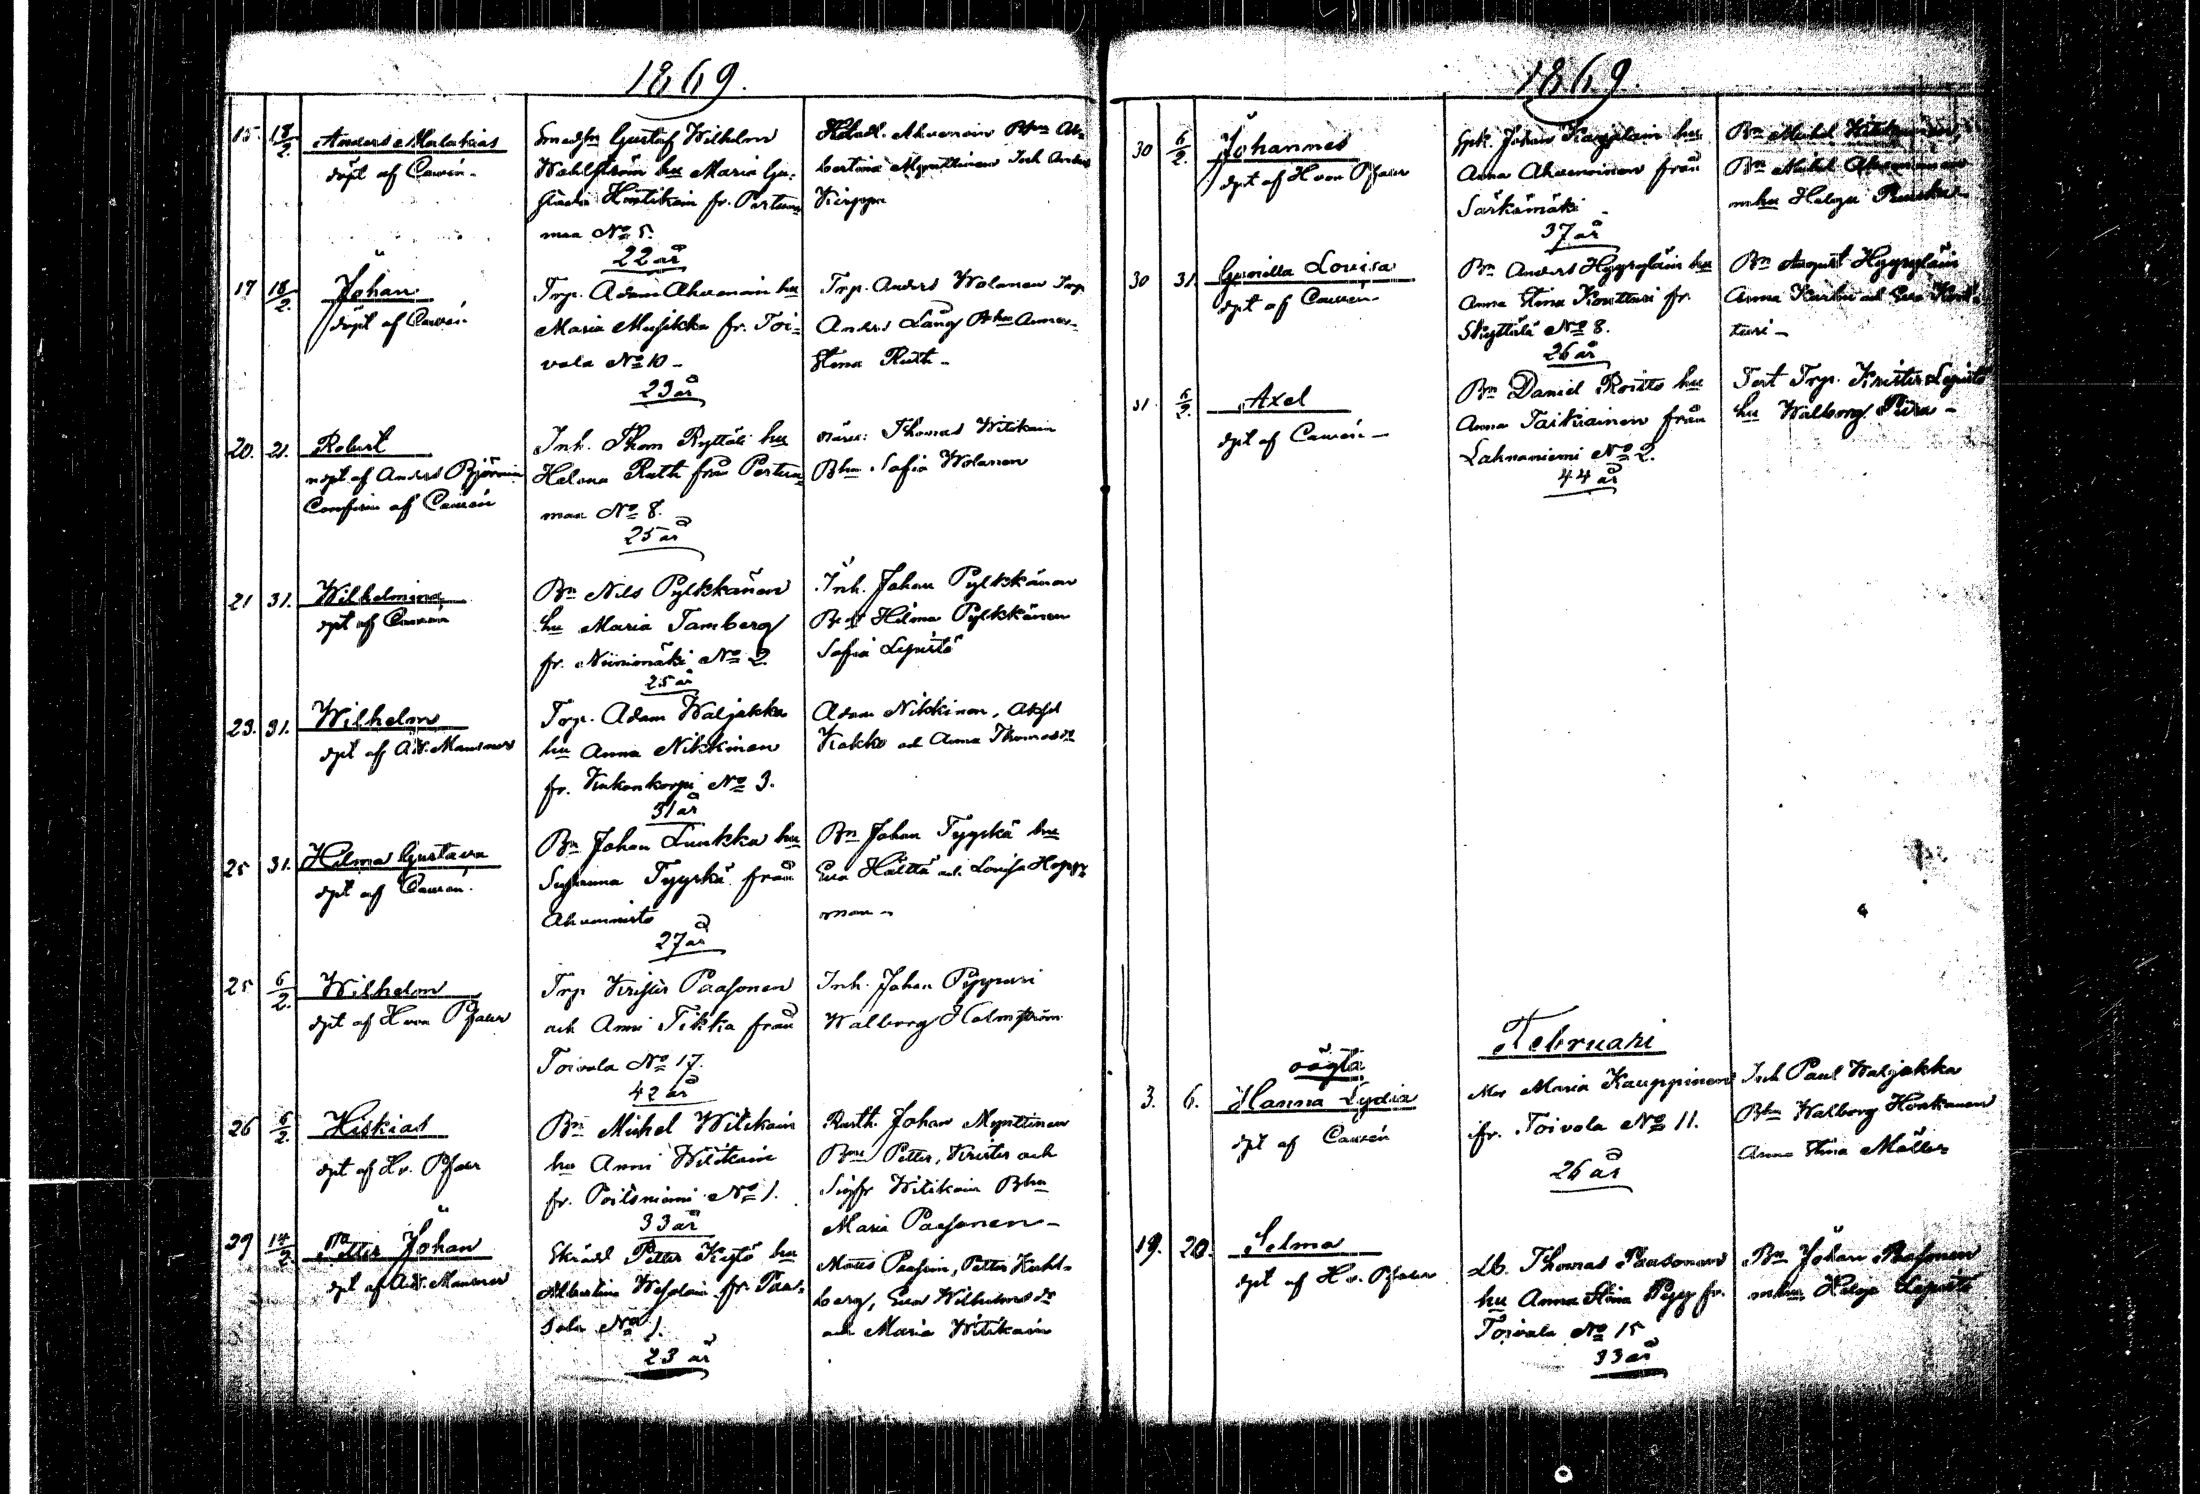 1869.
15. 18/2. Anders Malakias
döpt af Cawén
Smedsn Gustaf Wilhelm
Wahlström hu Maria
fr. Pertun
maa No 5.
22 år
Anders
Kirppu
17 18/2. Johan
döpt af Cawén
Trp. Adam Ahvenain hu
Maria Musikka fr. Toi-
vola No 10
23 år
Trp. Anders Wolanen Trp
Anders Lang Bhu Anna
Stina Ruth
20. 21. Robert
nöpt af Anders Björnin
Confirm af Cawén
Inh. Thom Ryttäli hu
Helena Ruth från Pertun
maa No 8.
25 år
Thomas Witikain
Bhu Sofia Wolanen
21 31. Wilhelmina
dpt af Cawén
Bn Nils Pylkkänen
hu Maria Tamberg
fr. Niinimäki No 2.
25 år
Inh. Johan Pylkkänen
Hilma Pylkkänen
Sofia Lepistö
23. 31. Wilhelm
dpt af A.W. Mansner
Trp. Adam Waljakka
hu Anna Nikkinen
fr. Kukonkorpi No 3.
31 år
Adam Nikkinen, Axel
Kakko och Anna Thomasdr
25 31. Hilma Gustava
dpt af Cawén.
Bn Johan Luukka hu
Susanna Tyyskä från
Ahvenisto
27 år
Bn Johan Tyyskä hu
Eva Hälttä och Lovisa Hopp
man
25 6/2. Wilhelm
dpt af H von Pfaler
Trp Krister Paasonen
och Anni Tikka från
Toivola No 17.
42 år
Inh. Johan Pyypuri
Walborg Holmström
26 6/2. Hiskias
dpt af H v. Pfaler
Bn Michel Witikain
hu Anni Witikain
fr. Poitsniemi No 1.
33 år
Rusth. Johan Mynttinen
Bne Petter, Krister och
Sigfr Witikain Bhu
Maria Paasonen
29 14/2. Petter Johan
dpt af A.W. Mansner
Skrädd Petter Kystö hu
Albertina Wesalain fr. Paa-
sola No 1.
23 år
Matts Paasoin, Petter Kuhl-
berg, Eva Wilhelmsdr
och Maria Witikain
1869.
30 6/2. Johannes
dpt af H von Pfaler
Spk. Johan Karjalain hu
Anna Ahvenainen från
Särkämäki
37 år
Bn Michel Witikainen
Bn Michel Ahvenainen
mhu Helga
30 31. Gunilla Lovisa
dpt af Cawén
Bn Anders Hyyryläin hu
Anna Stina Kouttari fr.
Skyttälä No 8.
26 år
Bn August Hyyryläin
Anna Karhu och Eva Kout-
tari
31. 6/2. Axel
dpt af Cawén
Bn Daniel Roitto hu
Anna Taikinainen från
Lahnaniemi No 2.
44 år
Test Trp. Krister Lepistö
hu Walborg
Februari
oägta
3. 6. Hanna Lydia
dpt af Cawén
Maria Kauppinen
fr. Toivola No 11.
26 år
Inh Paul Waljakka
Bhu Walborg Honkanen
Anna Stina Möller
19. 20. Selma
dpt af H v. Pfaler
Lb. Thomas Paasonen
hu Anna Stina Pyy fr.
Toivola No 15
33 år
Bn Johan Paasonen
mhu Helga Lepistö